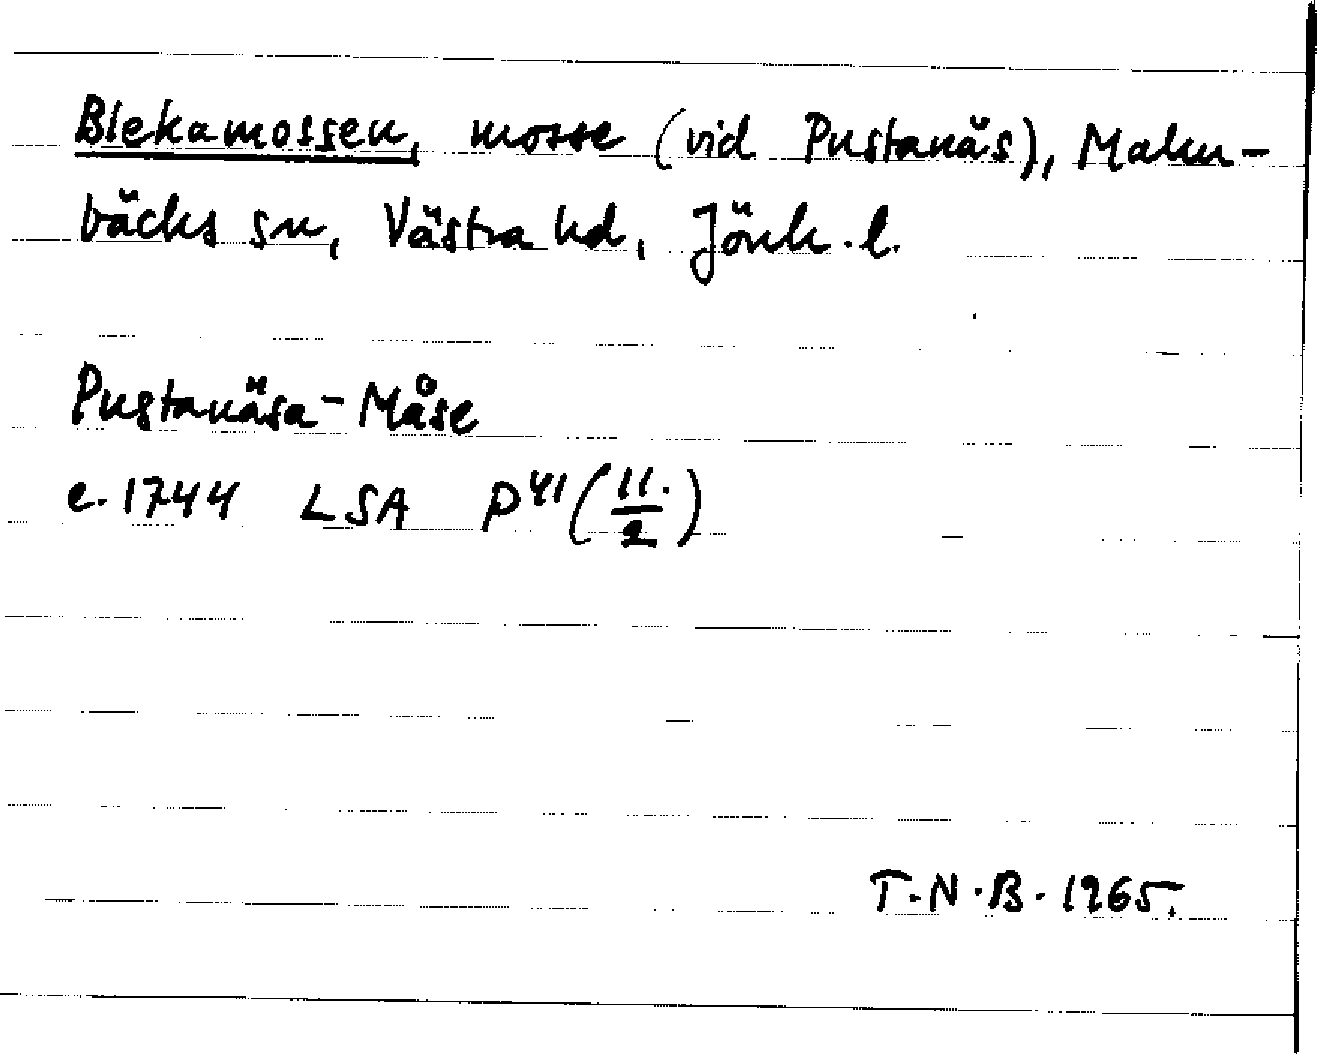 Blekamossen, mosse (vid Pustanäs), Malm-
bäcks sn, Västra hd, Jönk. l.
Pustanäsa-Måse
c. 1744 LSA P41 (11./2)
T.N.B. 1965.